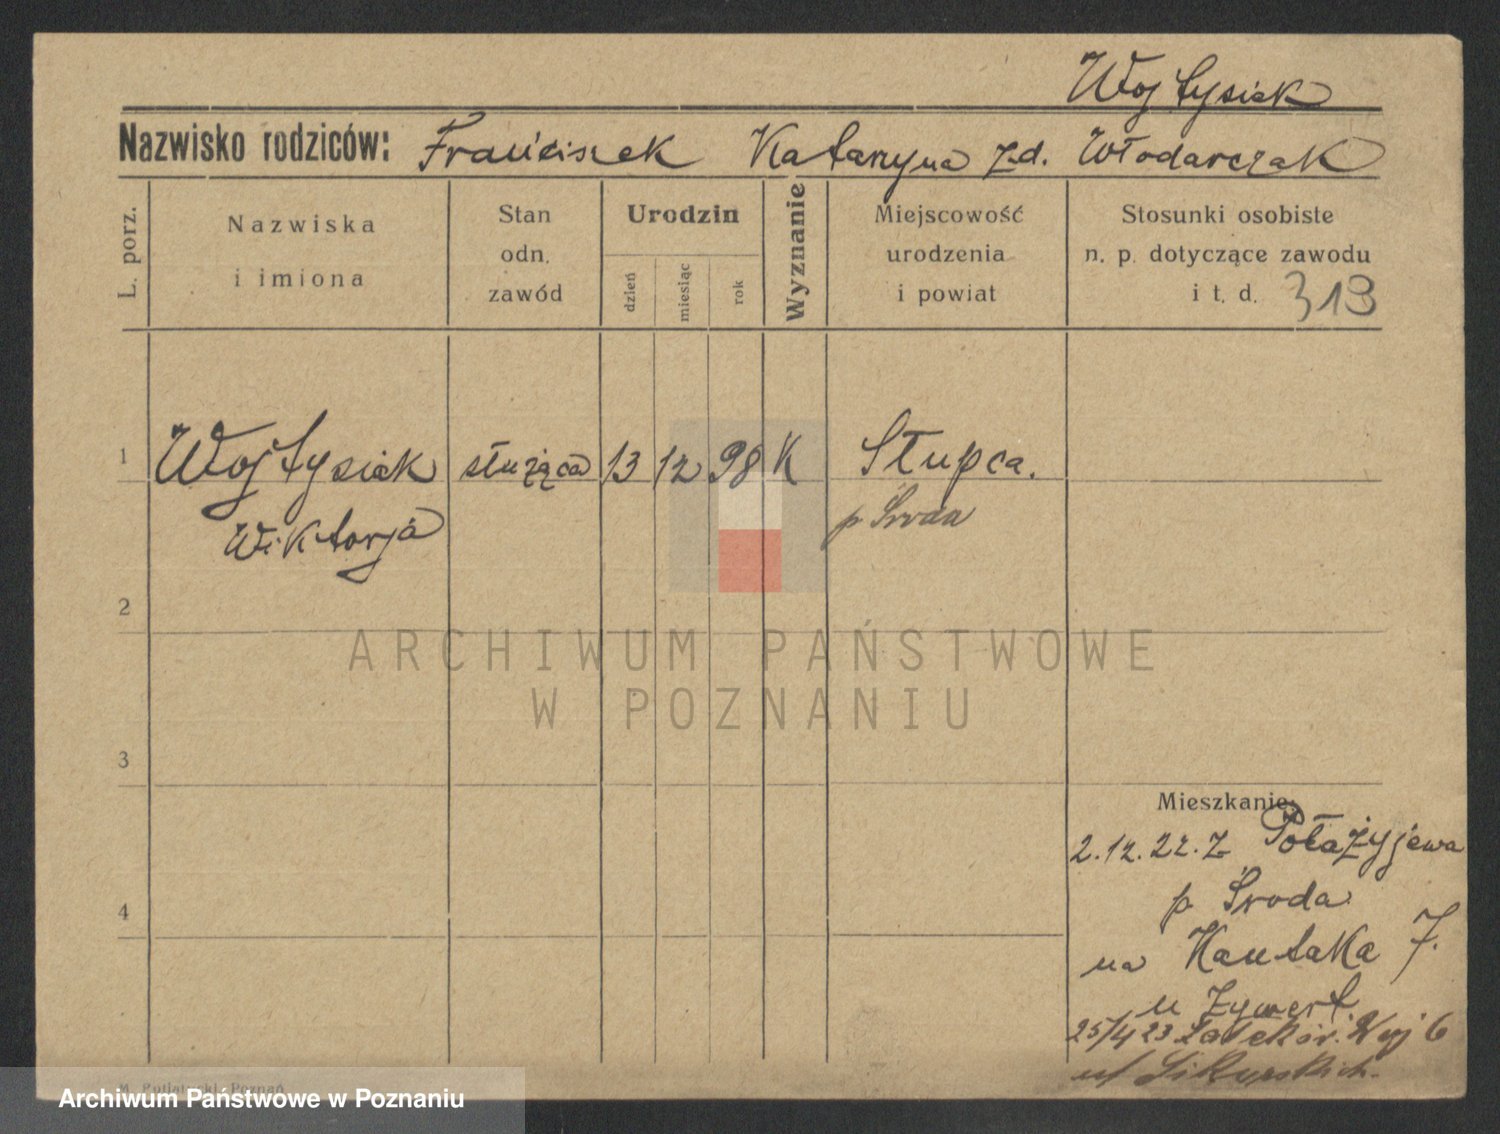 Wojtysiak
Nazwisko rodziców: Franciszek Katarzyna z.d. Włodarczak
L. porz.
Nazwiska
i imiona
Stan
odn.
zawód
Urodzin
dzień
miesiąc
rok
Wyznanie
Miejscowość
urodzenia
i powiat
Stosunki osobiste
n. p. dotyczące zawodu
i t. d. 319
1 Wojtysiak służąca 13 12 98 K Słupca.
Wiktorja
p Środa
2
3
4
Mieszkanie:
2.12.22. z Połażyjewa
p Środa
na Kantaka 7.
u Zywert
25/4 23
6
ARCHIWUM PAŃSTWOWE
W POZNANIU
Poznań
Archiwum Państwowe w Poznaniu